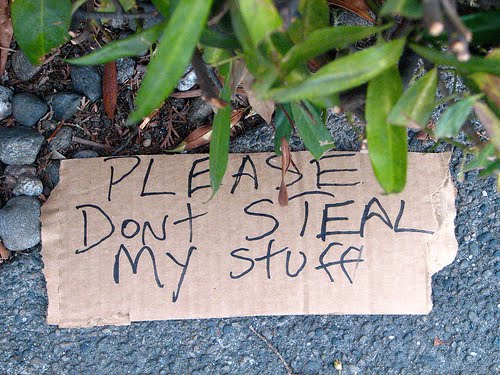 PLEASE
DONT STEAL
My stuff